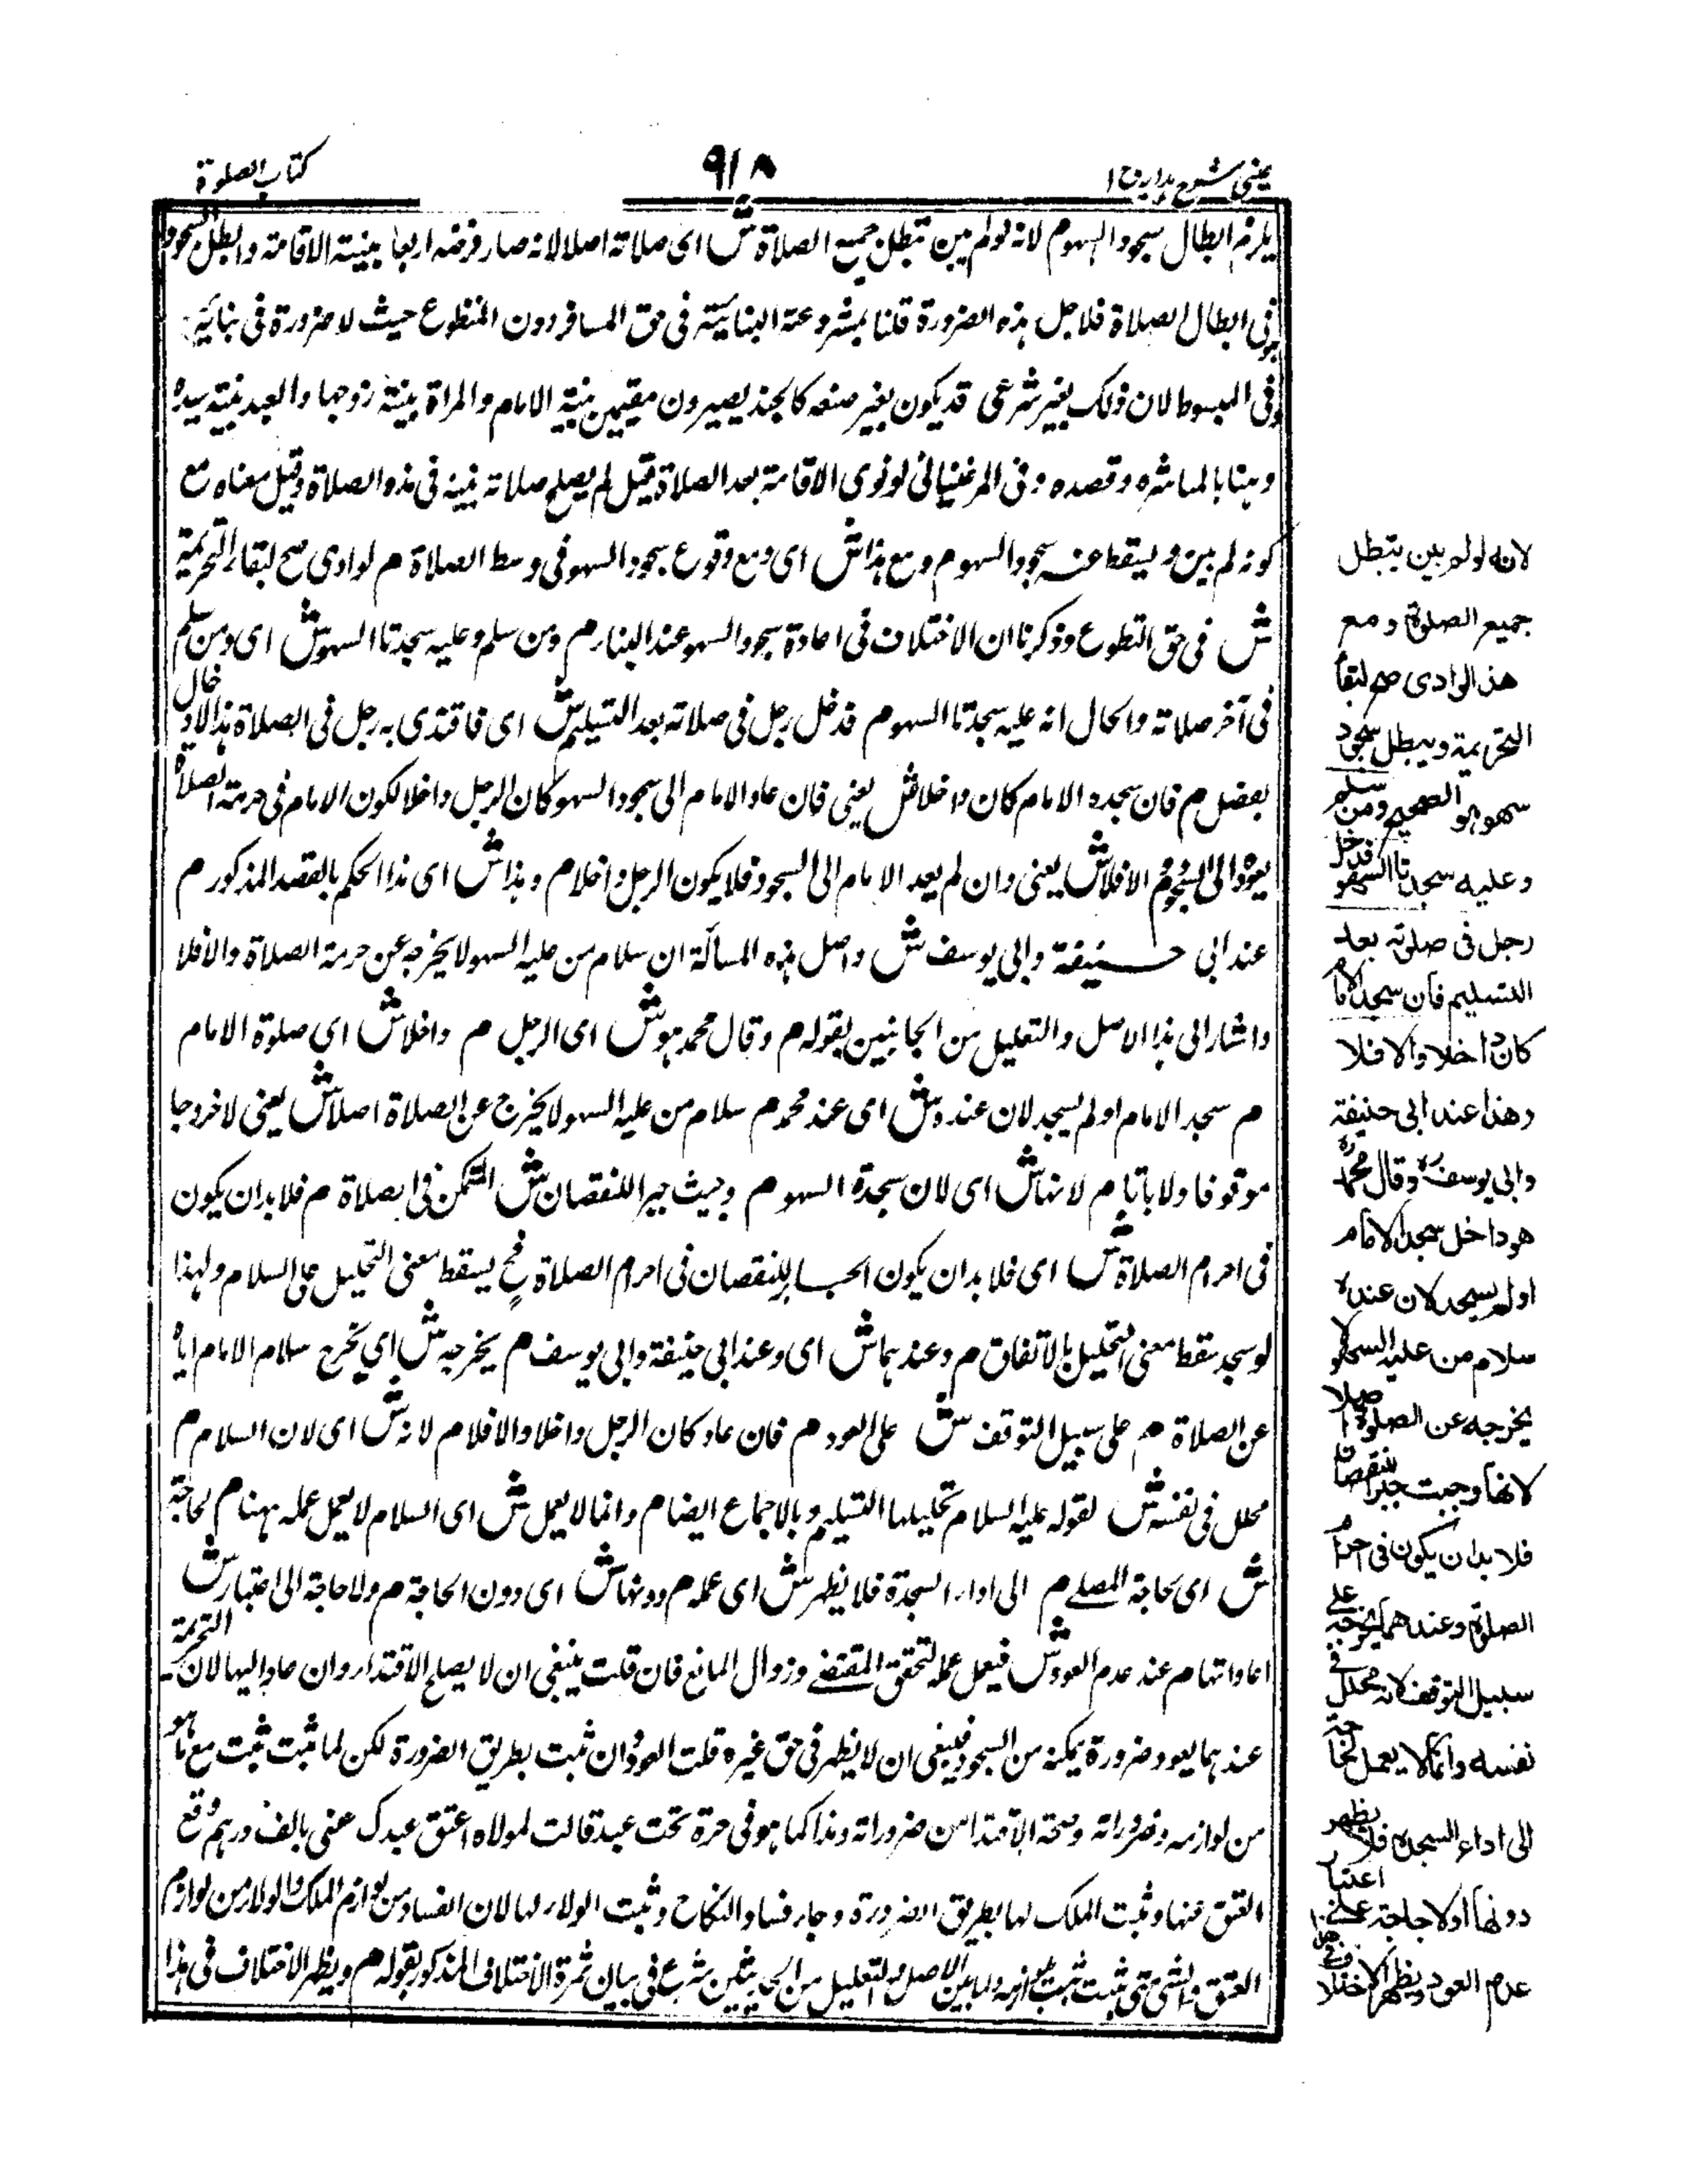 عینی شرح ہدایہ ج ۱
۹۱۸
کتاب الصلوة
یلزم ابطال سجود السہو م لانہ لو لم یبن تبطل جمیع الصلاة ش ای صلاتہ اصلا لانہ صار فرضہ اربعا بنیتہ الاقامتہ وابطل السجود
فی ابطال الصلاة فلاجل ہذہ الضرورة قلنا بمشروعتہ البنا بنیتہ فی حق المسافر دون المتطوع حیث لا ضرورة فی بنائہ
وفی المبسوط لان ذلک بغیر شرعی قد یکون بغیر صنعہ کالجند یصیرون مقیمین بنیة الامام والمراة بنیتہ زوجہا والعبد بنیتہ سیدہ
وہنا بالمباشرہ وقصدہ وفی المرغینانی لو نوی الاقامتہ بعد الصلاة قیل لم یصلح صلاتہ نیتہ فی ہذہ الصلاة وقیل معناہ مع
کونہ لم یبن ویسقط عنہ سجود السہو م ومع ہذا ش ای ومع وقوع سجود السہو فی وسط الصلاة م لو ادی صح لبقاء التحریمتہ
ش فی حق التطوع وذکرنا ان الاختلاف فی اعادة سجود السہو عند البناء م ومن سلم وعلیہ سجدتا السہو ش ای ومن سلم
فی آخر صلاتہ والحال انہ علیہ سجدتا السہو م فدخل رجل فی صلاتہ بعد التسلیم ش ای فاقتدی بہ رجل فی الصلاة ہذا الادخال
م فان سجدہ الامام کان داخلا ش یعنی فان عاد الامام الی سجود السہو کان الرجل داخلا لکون الامام فی حرمتہ الصلاة
م والا فلا ش یعنی وان لم یعد الامام الی السجود فلا یکون الرجل داخلا م وہذا ش ای ہذا الحکم بالقصد المذکور م
عند ابی حنیفة وابی یوسف ش واصل ہذہ المسالة ان سلام من علیہ السہو لا یخرجہ عن حرمتہ الصلاة والا فلا
واشار الی ہذا الاصل والتعلیل من الجانبین بقولہ م وقال محمد ہو ش ای الرجل م داخلا ش ای صلوة الامام
م سجد الامام او لم یسجد لان عندہ ش ای عند محمد م سلام من علیہ السہو لا یخرج عن الصلاة اصلا ش یعنی لا خروجا
موقوفا ولا باتا م لانہا ش ای لان سجدة السہو م وجبت جبرا للنقصان ش المتمکن فی الصلاة م فلابد ان یکون
فی احرام الصلاة ش ای فلابد ان یکون الجابر للنقصان فی احرام الصلاة فح یسقط معنی التحلیل عن السلام ولہذا
لو سجد سقط معنی التحلیل بالاتفاق م وعندہما ش ای وعند ابی حنیفة وابی یوسف م یخرجہ ش ای یخرج سلام الامام ایاہ
عن الصلاة م علی سبیل التوقف ش علی العود م فان عاد کان الرجل داخلا والا فلا م لانہ ش ای لان السلام م
محلل فی نفسہ ش لقولہ علیہ السلام تحلیلہا التسلیم وبالاجماع ایضا م وانما لا یعمل ش ای السلام لا یعمل عملہ ہہنا م لحاجتہ
ش ای لحاجة المصلے م الی اداء السجدة فلا یظہر ش ای عملہ م دونہا ش ای دون الحاجة م ولا حاجة الی اعتبار ش
م عند عدم العود ش فیعمل عملہ لتحقق المقتضے وزوال المانع فان قلت ینبغی ان لا یصلح الاقتدار وان عاد الیہا لان التحریمتہ
عندہما یعود ضرورة یمکنہ من السجود فینبغی ان لا یظہر فی حق غیرہ قلت العود وان ثبت بطریق الضرورة لکن لما ثبت ثبت مع ما ہو
من لوازمہ وضروراتہ وصحتہ الاقتدا من ضروراتہ وہذا کما ہو فی حرة تحت عبد قالت لمولاہ اعتق عبدک عنی بالف درہم وقع
العتق عنہا وثبت الملک لہا بطریق الضرورة وجاء فساد النکاح وثبت الولاء لہا لان الفساد من لوازم الملک والولاء من لوازم
العتق والشئ متی ثبت ثبت بلوازمہ ولما بین الاصل والتعلیل من الجانبین شرع فی بیان ثمرة الاختلاف المذکور بقولہ م ویظہر الاختلاف فی ہذا
لانه لو لم یبن یبطل
جمیع الصلوة ومع
هذا لو ادی صح لبقاء
التحریمة ویبطل سجود
سهو هو الصحیح ومن سلم
وعلیه سجدتا السهو فدخل
رجل فی صلوته بعد
التسلیم فان سجد الامام
کان داخلا والا فلا
وهذا عند ابی حنیفة
وابی یوسف رہ وقال محمد رہ
هو داخل سجد الامام
اولم یسجد لان عنده
سلام من علیه السهو لا
یخرجه عن الصلوة اصلا
لانها وجبت جبرا للنقصان
فلا بد ان یکون فی احرام
الصلوة وعندهما یخرجه علی
سبیل التوقف لانه محلل فی
نفسه وانما لا یعمل لحاجته
الی اداء السجدة فلا یظهر
دونها ولا حاجة علی اعتبار
عدم العود ویظهر الاختلاف